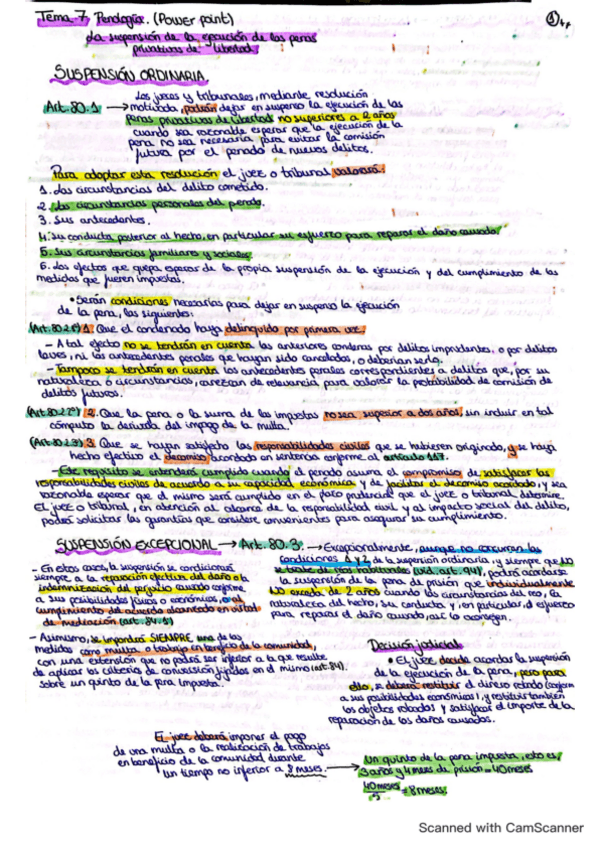 Tema 7 Penología. (Power point)
La suspensión de la ejecución de las penas
privativas de libertad
SUSPENSIÓN ORDINARIA.
Los jueces y tribunales, mediante resolución
Art. 80.1 → motivada, podrán dejar en suspenso la ejecución de las
penas privativas de libertad no superiores a 2 años
cuando sea razonable esperar que la ejecución de la
pena no sea necesaria para evitar la comisión
futura por el penado de nuevos delitos.
Para adoptar esta resolución el juez o tribunal valorará:
1. Las circunstancias del delito cometido.
2. Las circunstancias personales del penado.
3. Sus antecedentes.
4. Su conducta posterior al hecho, en particular su esfuerzo para reparar el daño causado.
5. Sus circunstancias familiares y sociales.
6. Los efectos que quepa esperar de la propia suspensión de la ejecución y del cumplimiento de las
medidas que fueren impuestas.
• Serán condiciones necesarias para dejar en suspenso la ejecución
de la pena, las siguientes:
(Art. 80.2.1ª) 1. Que el condenado haya delinquido por primera vez.
- A tal efecto no se tendrán en cuenta las anteriores condenas por delitos imprudentes, o por delitos
leves, ni los antecedentes penales que hayan sido cancelados, o deberían serlo.
- Tampoco se tendrán en cuenta los antecedentes penales correspondientes a delitos que, por su
naturaleza o circunstancias, carezcan de relevancia para valorar la probabilidad de comisión de
delitos futuros.
(Art. 80.2.2ª) 2. Que la pena o la suma de las impuestas no sea superior a dos años, sin incluir en tal
cómputo la derivada del impago de la multa.
(Art. 80.2.3) 3. Que se hayan satisfecho las responsabilidades civiles que se hubieren originado, y se haya
hecho efectivo el decomiso acordado en sentencia conforme al artículo 127.
- Este requisito se entenderá cumplido cuando el penado asuma el compromiso de satisfacer las
responsabilidades civiles de acuerdo a su capacidad económica y de facilitar el decomiso acordado, y sea
razonable esperar que el mismo será cumplido en el plazo prudencial que el juez o tribunal determine.
El juez o tribunal, en atención al alcance de la responsabilidad civil y al impacto social del delito,
podrá solicitar las garantías que considere convenientes para asegurar su cumplimiento.
SUSPENSIÓN EXCEPCIONAL → Art. 80.3. → Excepcionalmente, aunque no concurran las
condiciones 1 y 2 de la suspensión ordinaria, y siempre que NO
se trate de reos habituales (vid. art. 94), podrá acordarse
la suspensión de la pena de prisión que individualmente
NO exceda de 2 años cuando las circunstancias del reo, la
naturaleza del hecho, su conducta y, en particular, el esfuerzo
para reparar el daño causado, así lo aconsejen.
- En estos casos, la suspensión se condicionará
siempre a la reparación efectiva del daño o la
indemnización del perjuicio causado conforme
a sus posibilidades físicas o económicas, o al
cumplimiento del acuerdo alcanzado en virtud
de mediación (art. 84.1)
- Asimismo, se impondrá SIEMPRE una de las
medidas como multa o trabajo en beneficio de la comunidad,
con una extensión que no podrá ser inferior a la que resulte
de aplicar los criterios de conversión fijados en el mismo (art. 84),
sobre un quinto de la pena impuesta.
Decisión judicial:
• El juez decide acordar la suspensión
de la ejecución de la pena, pero para
ello, se deberá restituir el dinero robado (conforme
a sus posibilidades económicas), y restituir también
los objetos robados y satisfacer el importe de la
reparación de los daños causados.
El juez deberá imponer el pago
de una multa o la realización de trabajos
en beneficio de la comunidad durante
un tiempo no inferior a 8 meses. →
Un quinto de la pena impuesta, esto es,
3 años y 4 meses de prisión = 40 meses
40 meses
5 = 8 meses.
Scanned with CamScanner